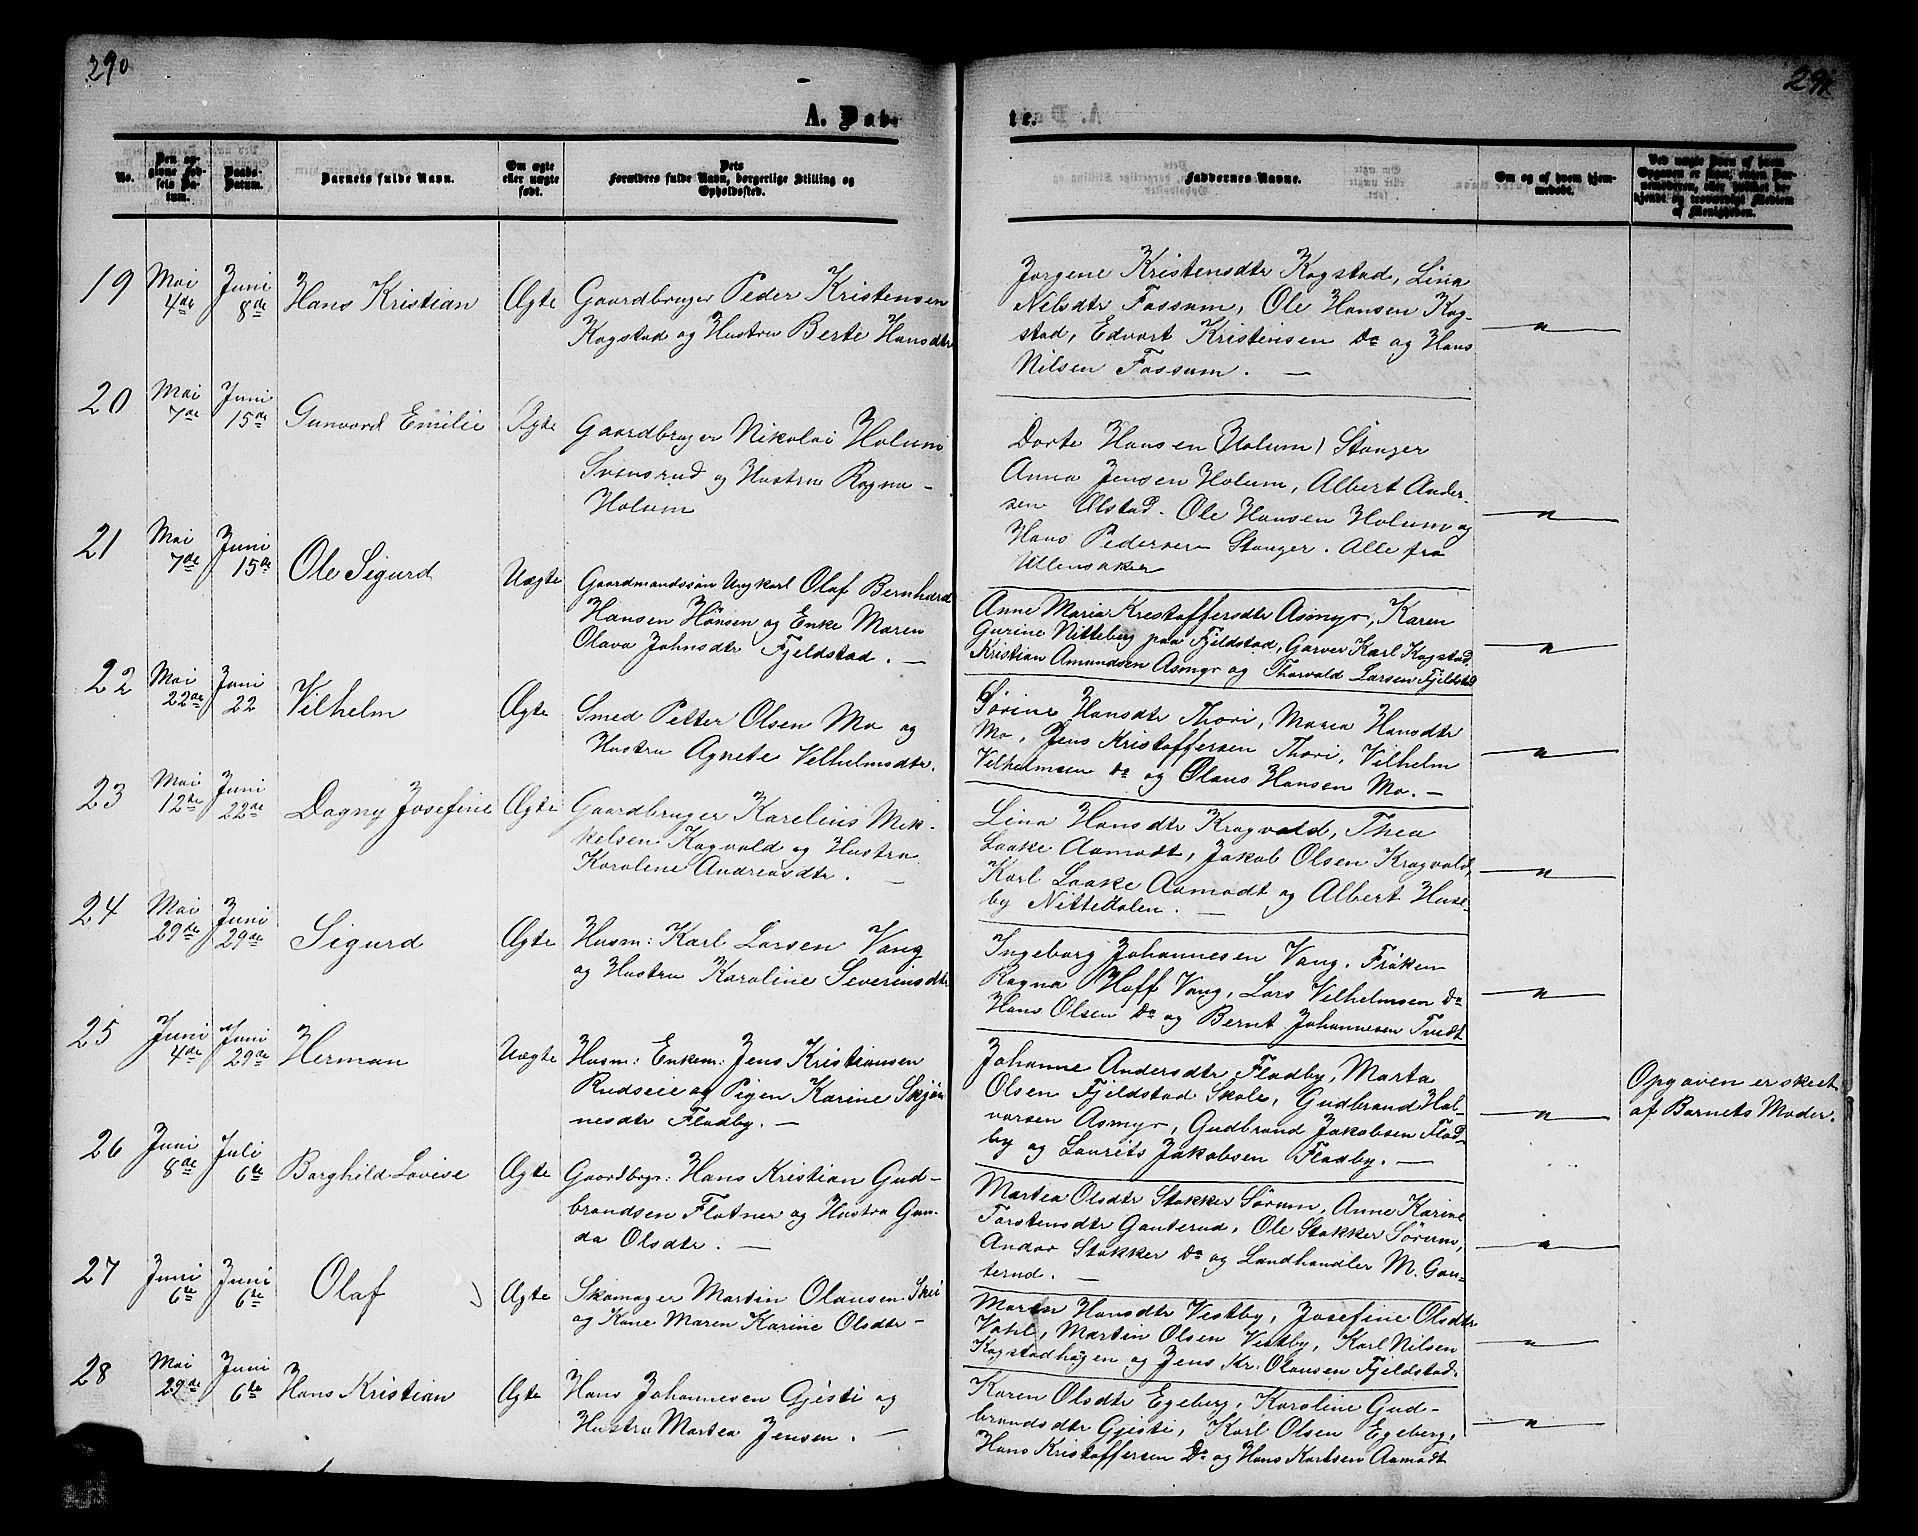 290
A. Døb-
No.
Den op-
givne Fød-
sels Da-
tum.
Daabs-
Datum.
Barnets fulde Navn.
Om ægte
eller uægte
født.
Dets
Forældres fulde Navn, borgerlige Stilling og
Opholdssted.
19 Mai 4de Juni 8de Hans Kristian Ægte Gaardbruger Peder Kristensen
Kogstad og Hustru Berte Hansdtr
20 Mai 7de Juni 15de Gunvord Emilie Ægte Gaardbruger Nikolai Holum
Svensrud og Hustru Ragna -
Holum
21 Mai 7de Juni 15de Ole Sigurd Uægte Gaardmandssøn Ungkarl Olaf Bernhard
Hansen Hönsen og Enke Maren
Olava Johnsdtr Fjeldstad. —
22 Mai 22de Juni 22 Vilhelm Ægte Smed Petter Olsen Mo og
Hustru Agnete Velhelmsdtr.
23 Mai 12te Juni 22de Dagny Josefine Ægte Gaardbruger Karelius Mik-
kelsen Kagvald og Hustru
Karoline Andreasdtr. —
24 Mai 29de Juni 29de Sigurd Ægte Husm: Karl Larsen Vang
og Hustru Karoline Severinsdtr
25 Juni 4de Juni 29de Herman Uægte Husm: Enkem: Jens Kristiansen
Rudseie og Pigen Karine Skjön-
nesdtr Fladby. —
26 Juni 8de Juli 6te Borghild Lovise Ægte Gaardbrgr: Hans Kristian Gud-
brandsen Flatner og Hustru Gun-
da Olsdtr. —
27 Juni 6te Juni 6te Olaf Ægte Skomager Martin Olausen Skii
og Kone Maren Karine Olsdtr -
28 Mai 29de Juni 6te Hans Kristian Ægte Hans Johannesen Gjesti og
Hustru Martea Jensen. —
291.
te.
Faddernes Navne.
Om og af hvem hjem-
medøbt.
Ved uægte Børn af hvem
Opgaven er skeet, enten Bar-
nemoderen, eller hvilket be-
kjendt og troværdigt Medlem
af Menigheden.
Jorgene Kristensdtr Kogstad, Lina
Nilsdtr Fossum, Ole Hansen Kog-
stad, Edvart Kristensen Do og Hans
Nilsen Fossum. —
Dorte Hansen (Holum) Stanger
Anna Jensen Holum, Albert Ander-
sen Ulstad. Ole Hansen Holum og
Hans Pedersen Stanger. Alle fra
Ullensaker
Anne Maria Krestoffersdtr Asmyr, Karen
Gurine Nitteberg paa Fjeldstad, Garver Karl Kogstad
Kristian Amundsen Asmyr og Thorvald Larsen Fjeldstad
Sørine Hansdtr Thori, Maria Hansdtr
Mo, Jens Kristoffersen Thori, Vilhelm
Vilhelmsen Do og Olaus Hansen Mo. —
Lina Hansdtr Kragvold, Thea
Laake Aamodt, Jakob Olsen Kragvold
Karl Laake Aamodt og Albert Huse-
by Nittedalen. —
Ingeborg Johannesen Vang. Frøken
Ragna Hoff Vang, Lars Vilhelmsen Do
Hans Olsen Do og Bernt Johannesen Tvedt
Johanne Andersdtr Fladby, Marta
Olsen Fjeldstad Skole, Gudbrand Hal-
vorsen Asmyr, Gudbrand Jakobsen Flad-
by og Laurits Jakobsen Fladby. —
Opgaven er skeet
af Barnets Moder.
Martea Olsdtr Stokker Sørum, Anne Karine
Torstensdtr Gauterud, Ole Stokker Sørum,
Andor Stokker Do og Landhandler M. Gau-
terud. —
Maren Hansdtr Vestby, Josefine Olsdtr
Vahl, Martin Olsen Vestby, Karl Nilsen
Kogstadhagen og Jens Kr. Olausen Fjeldstad.
Karen Olsdtr Egeberg, Karoline Gud-
brandsdtr Gjesti, Karl Olsen Egeberg,
Hans Kristoffersen Do og Hans Karlsen Aamodt